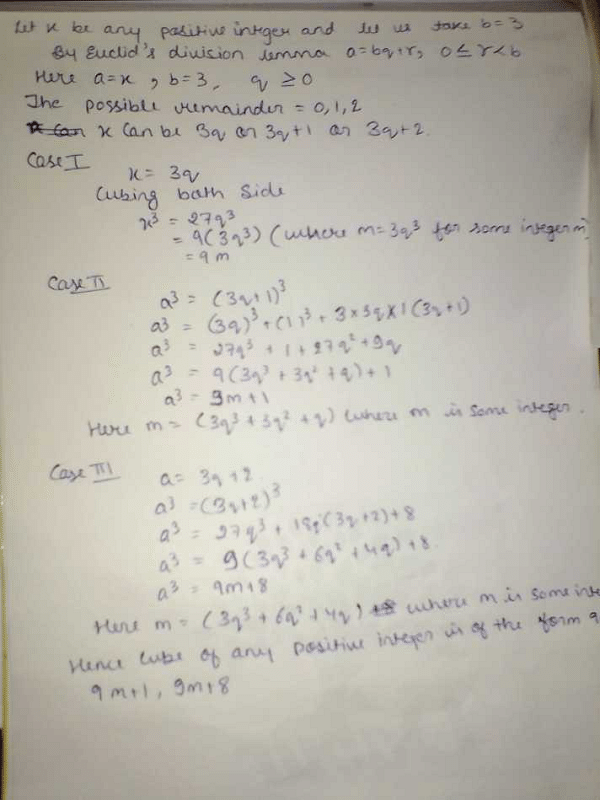 Let x be any positive integer and let us take b=3
By Euclid's division lemma a=bq+r, 0≤r<b
Here a=x , b=3, q ≥0
The possible remainder = 0,1,2
x can be 3q or 3q+1 or 3q+2.
Case I
x = 3q
Cubing both side
x³ = 27q³
= 9(3q³) (where m=3q³ for some integer m)
= 9m
Case II
a³ = (3q+1)³
a³ = (3q)³+(1)³+3×3q×1(3q+1)
a³ = 27q³+1+27q²+9q
a³ = 9(3q³+3q²+q)+1
a³ = 9m+1
Here m= (3q³+3q²+q) where m is some integer.
Case III
a= 3q+2
a³ =(3q+2)³
a³ = 27q³+18q(3q+2)+8
a³ = 9(3q³+6q²+4q)+8
a³ = 9m+8
Here m= (3q³+6q²+4q) where m is some inte
Hence cube of any positive integer is of the form 9
9m+1, 9m+8